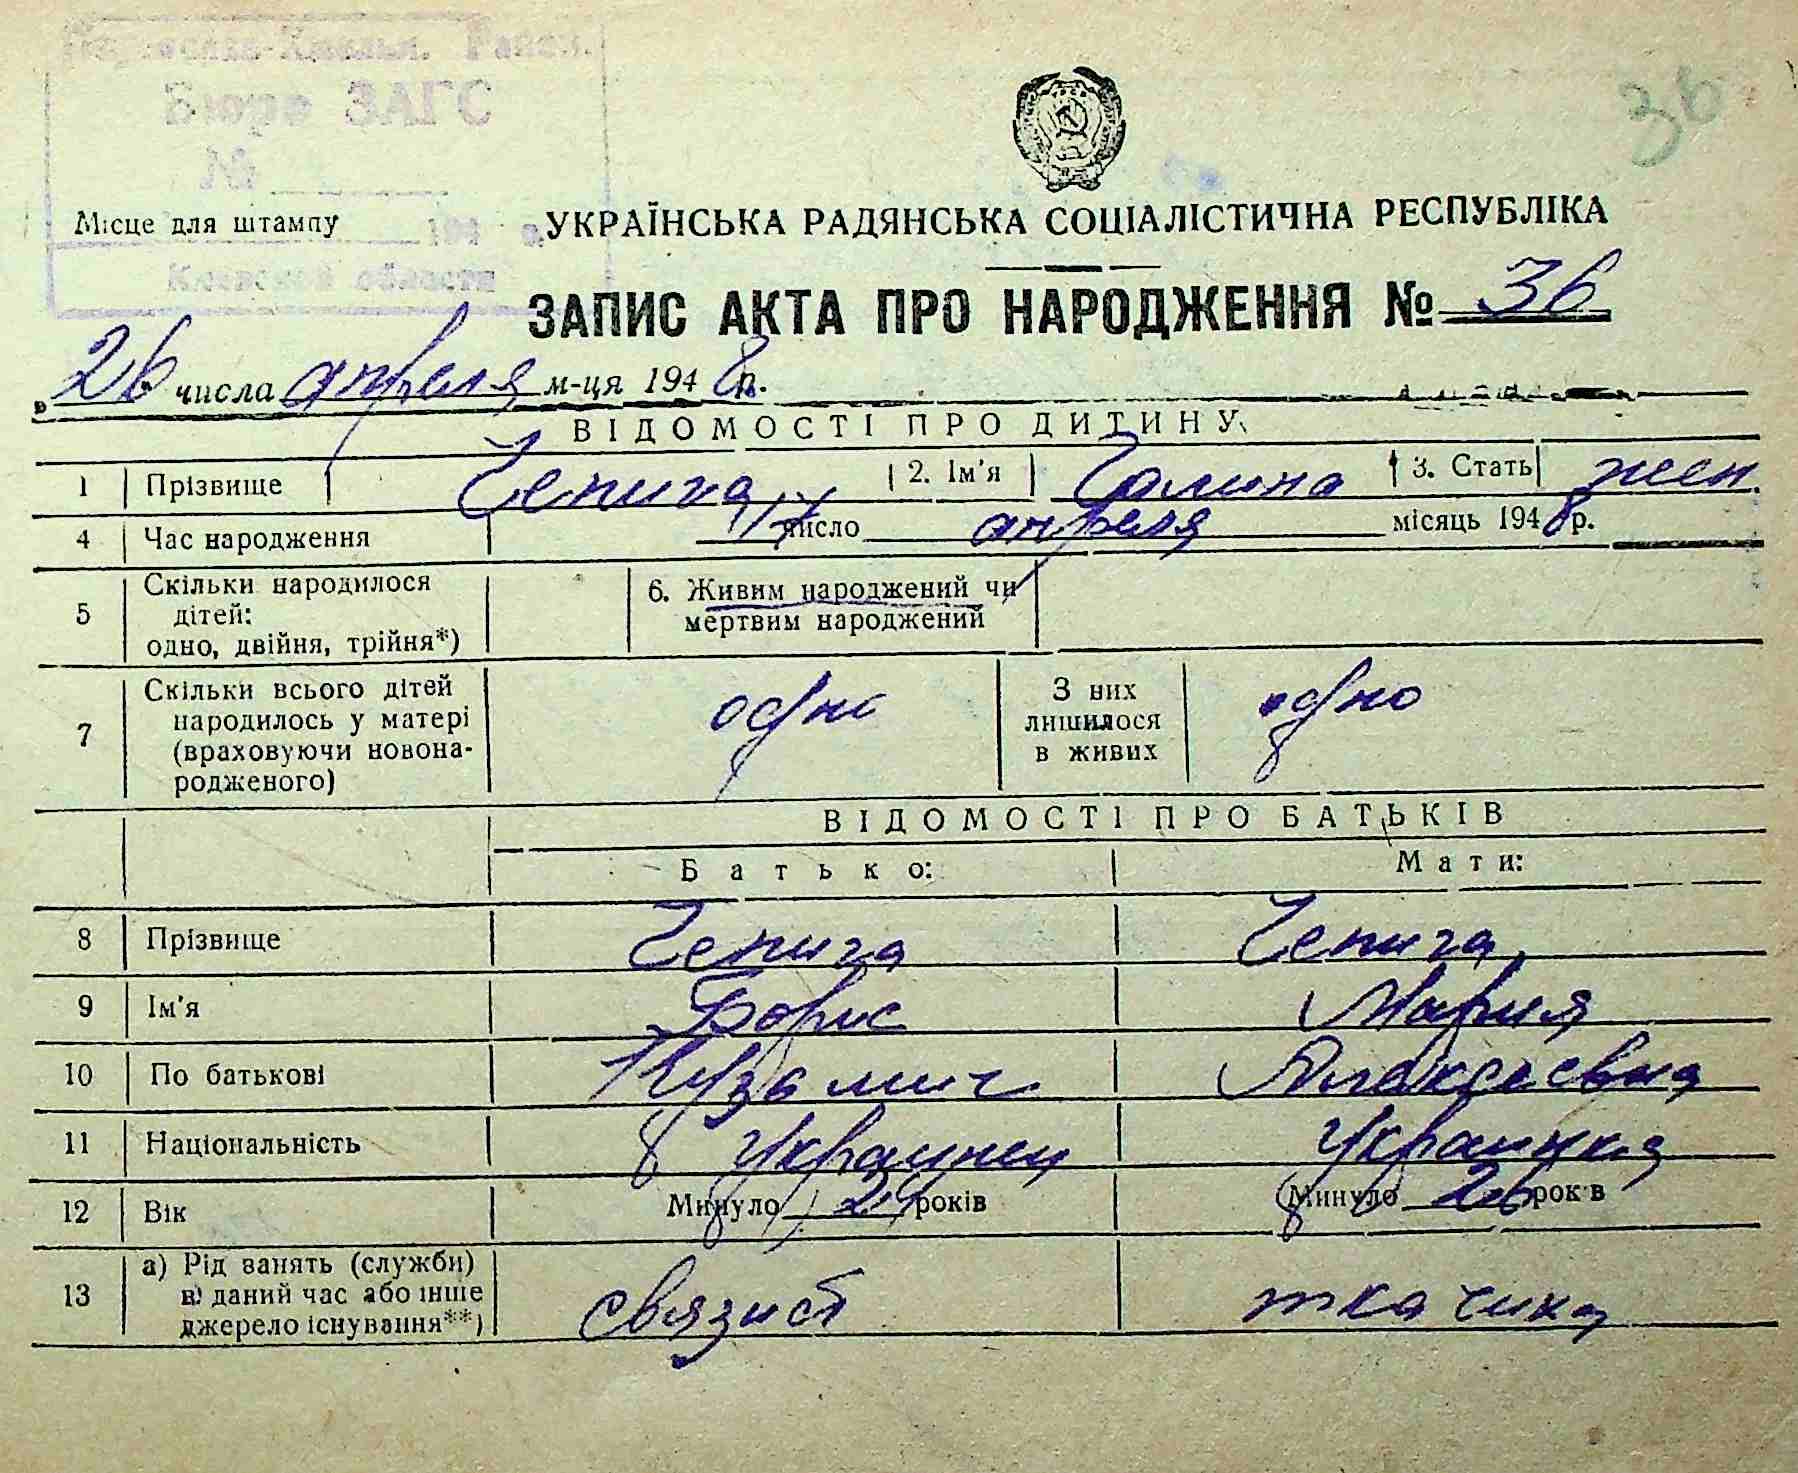 Бюро ЗАГС
№
Киевской области
36
Місце для штампу
УКРАЇНСЬКА РАДЯНСЬКА СОЦІАЛІСТИЧНА РЕСПУБЛІКА
ЗАПИС АКТА ПРО НАРОДЖЕННЯ № 36
26 числа апреля м-ця 1948 р.
ВІДОМОСТІ ПРО ДИТИНУ
1 Прізвище Чепига 2. Ім'я Галина 3. Стать жен.
4 Час народження 17 число апреля місяць 1948 р.
5 Скільки народилося дітей: одно, двійня, трійня*) 6. Живим народжений чи мертвим народжений
7 Скільки всього дітей народилось у матері (враховуючи новонародженого) одно З них лишилося в живих одно
ВІДОМОСТІ ПРО БАТЬКІВ
Батько: Мати:
8 Прізвище Чепига Чепига
9 Ім'я Борис Мария
10 По батькові Кузьмич Алексеевна
11 Національність Украинец Украинка
12 Вік Минуло 24 років Минуло 26 рок в
13 а) Рід занять (служби) в даний час або інше джерело існування**) связист ткачиха